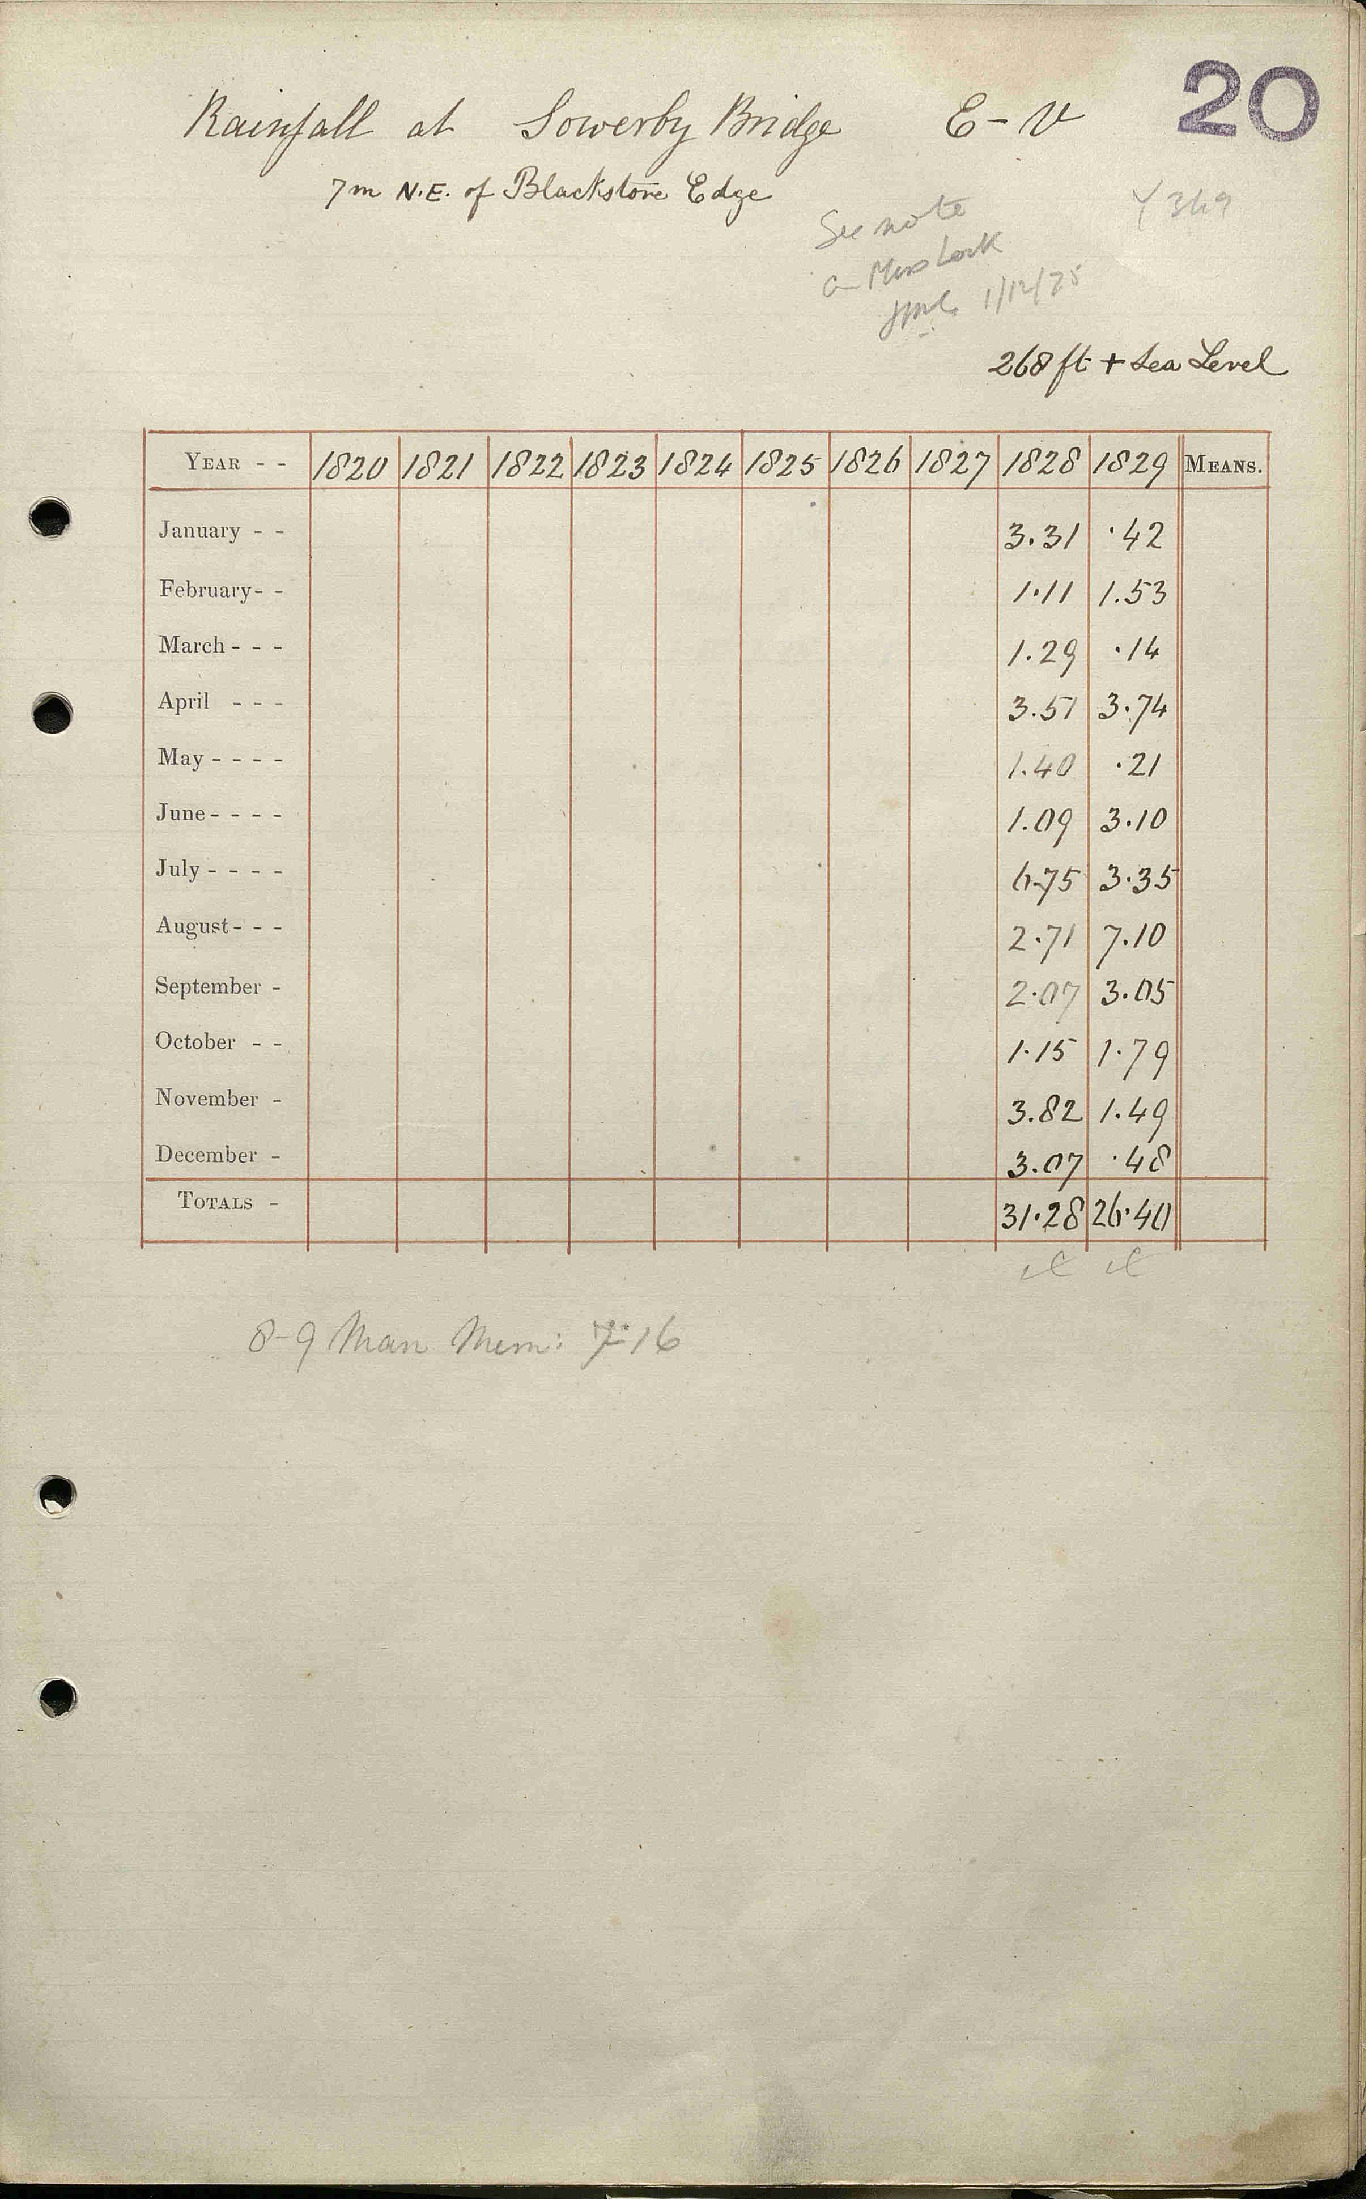 20
Rainfall at Sowerby Bridge E-V
7m N.E. of Blackstone Edge
Y 369
See note
1/12/25
268 ft + Sea Level
YEAR - - 1820 1821 1822 1823 1824 1825 1826 1827 1828 1829 MEANS.
January - - 3.31 .42
February - - 1.11 1.53
March - - - 1.29 .14
April - - - 3.51 3.74
May - - - - 1.40 .21
June - - - - 1.09 3.10
July - - - - 6.75 3.35
August - - - 2.71 7.10
September - 2.07 3.05
October - - 1.15 1.79
November - 3.82 1.49
December - 3.07 .48
TOTALS - 31.28 26.40
8-9 Man Mem: 16